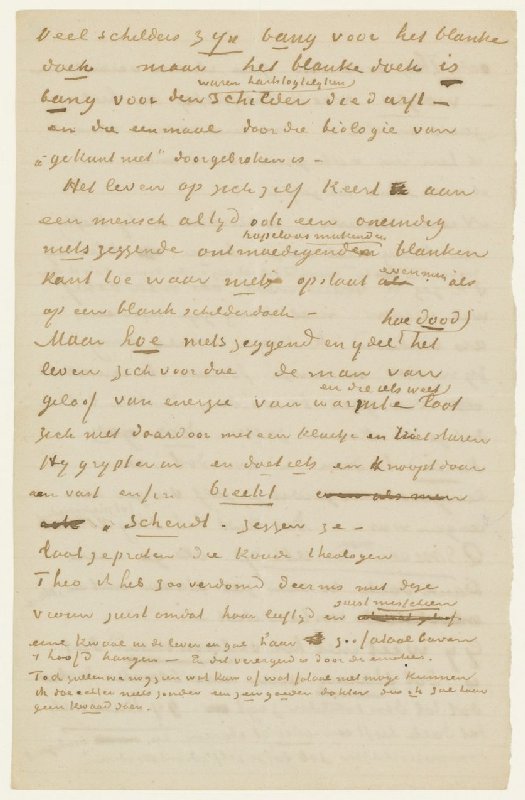 Veel schilders zijn bang voor het blanke
doek maar het blanke doek is
waren hartstogtelyken
bang voor den schilder die darft —
en die eenmaal door die biologie van
„ge kunt niet" doorgebroken is —
Het leven op zich zelf keert aan
een mensch altyd ook een oneindig
hopeloos makenden
niets zeggende ontmoedigenden blanken
kant toe waar niets op staat als
evenmin als
op een blank schilderdoek —
hoe dood)
Maar hoe niets zeggend en ydel het
leven zich voor doe de man van
en die iets weet
geloof van energie van warmte laat
zich niet daardoor met een kluitje en riet sturen
Hy grypt er in en doet iets en knoopt daar
aan vast enfin breekt even als men
„schendt". zeggen ze —
Laat ze praten die koude theologen
Theo ik heb zoo verdomd deernis met deze
vrouw juist omdat haar leeftyd en
juist misschien
eene kwaal in de lever en gal haar zoo fataal boven
t hoofd hangen — & dit verergerd is door de emoties.
Toch zullen we nog zien wat kan of wat fataal niet moge kunnen
ik doe echter niets zonder een zeer goeden dokter dus ik zal haar
geen kwaad doen.